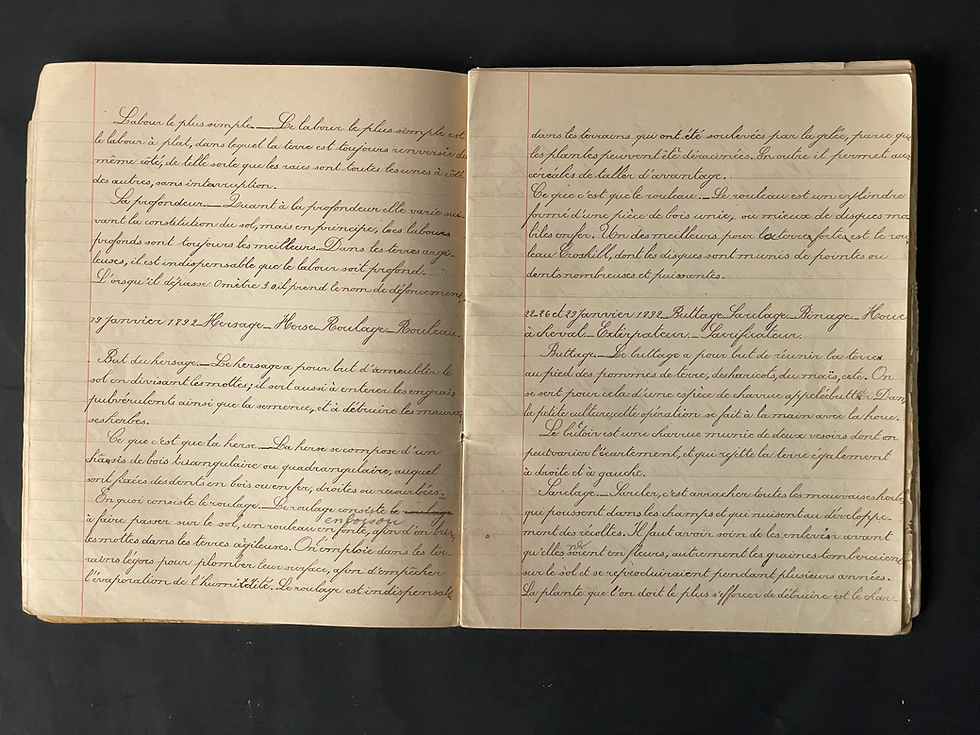 Labour le plus simple.— Le labour le plus simple est
le labour à plat, dans lequel la terre est toujours renversée du
même côté, de telle sorte que les raies sont toutes les unes à côté
des autres, sans interruption.
La profondeur.— Quant à la profondeur elle varie sui-
vant la constitution du sol, mais en principe, les labours
profonds sont toujours les meilleurs. Dans les terres argi-
leuses, il est indispensable que le labour soit profond.
L'orsqu'il dépasse 0 mètre 30 il prend le nom de défoncement.
19 Janvier 1892 Hersage_Herse_Roulage_Rouleau.
But du hersage.— Le hersage a pour but d'ameublir le
sol en divisant les mottes; il sert aussi à enterer les engrais
pulvérulents ainsi que la semence, et à détruire les mauvai-
ses herbes.
Ce que c'est que la herse.— La herse se compose d'un
châssis de bois triangulaire ou quadrangulaire, auquel
sont fixées des dents en bois ou en fer, droites ou recourbées.
En quoi consiste le roulage.— Le roulage consiste le roulage
à faire passer sur le sol, un rouleau en fonte, afin d'en bris
en foison
les mottes dans les terres agileuses. On emploie dans les ter-
rains légers pour plomber leur surface, afin d'empêcher
l'évaporation de l'humidité. Le roulage est indispensable
dans les terrains qui ont été soulevées par la gelée, parce que
les plantes peuvent être déracinées. En outre il permet aux
céréales de taller d'avantage.
Ce que c'est que le rouleau.— Le rouleau est un cylindre
formé d'une pièce de bois unie, ou mieux de disques mo
biles en fer. Un des meilleurs pour les terres fortes, est le rou
leau Croskill, dont les disques sont munis de pointes ou
dents nombreuses et puissantes.
22-26 et 29 Janvier 1892_Buttage_Sarclage_Binage_Houe
à cheval_Extirpateur_Scarificateur.
Buttage.— Le buttage a pour but de réunir la terre
au pied des pommes de terre, des haricots, du maïs, etc. On
se sert pour cela d'une espèce de charrue appelée buttoir. Dans
la petite culture, cette opération se fait à la main avec la houe.
Le butoir est une charrue munie de deux versoirs dont on
peut varier l'écartement, et qui rejette la terre également
à droite et à gauche.
Sarclage.— Sarcler, c'est arracher toutes les mauvaises herbes
qui poussent dans les champs et qui nuisent au développe-
ment des récoltes. Il faut avoir soin de les enlever avant
qu'elles ne soient en fleurs, autrement les graines tomberaient
sur le sol et se reproduiraient pendant plusieurs années.
La plante que l'on doit le plus s'efforcer de détruire est le char-